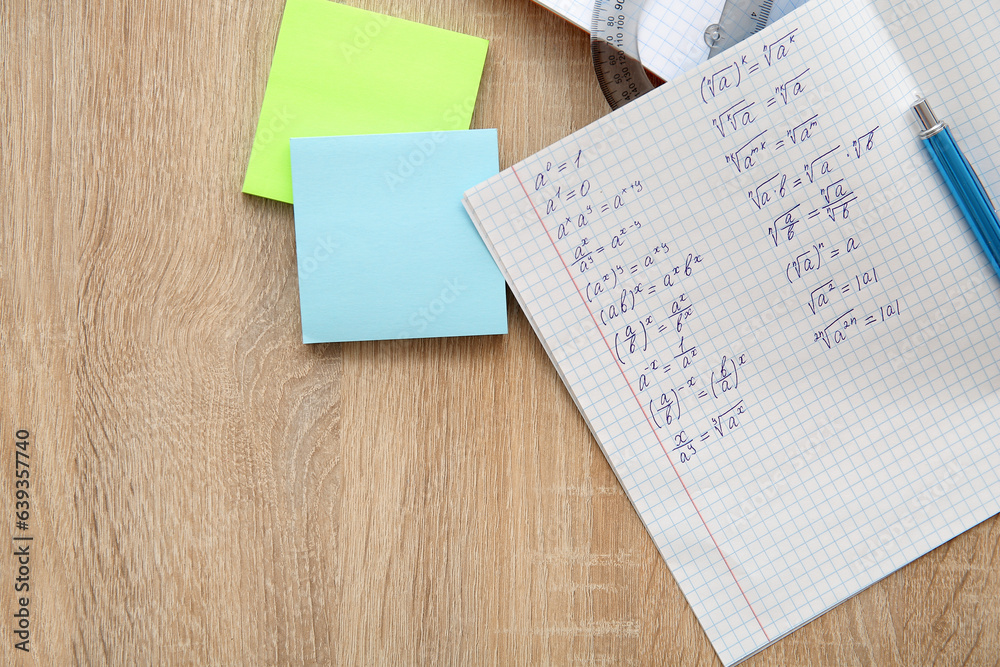 a⁰ = 1
a¹ = 0
aˣ aʸ = aˣ⁺ʸ
aˣ/aʸ = aˣ⁻ʸ
(aˣ)ʸ = aˣʸ
(ab)ˣ = aˣbˣ
(a/b)ˣ = aˣ/bˣ
a⁻ˣ = 1/aˣ
(a/b)⁻ˣ = (b/a)ˣ
x/aʸ = ʸ√aˣ
(ⁿ√a)ᵏ = ⁿ√aᵏ
ⁿ√ᵏ√a = ⁿᵏ√a
ⁿᵏ√aᵐᵏ = ⁿ√aᵐ
ⁿ√a·b = ⁿ√a · ⁿ√b
ⁿ√a/b = ⁿ√a/ⁿ√b
(ⁿ√a)ⁿ = a
√a² = |a|
²ⁿ√a²ⁿ = |a|
Adobe Stock | #639357740